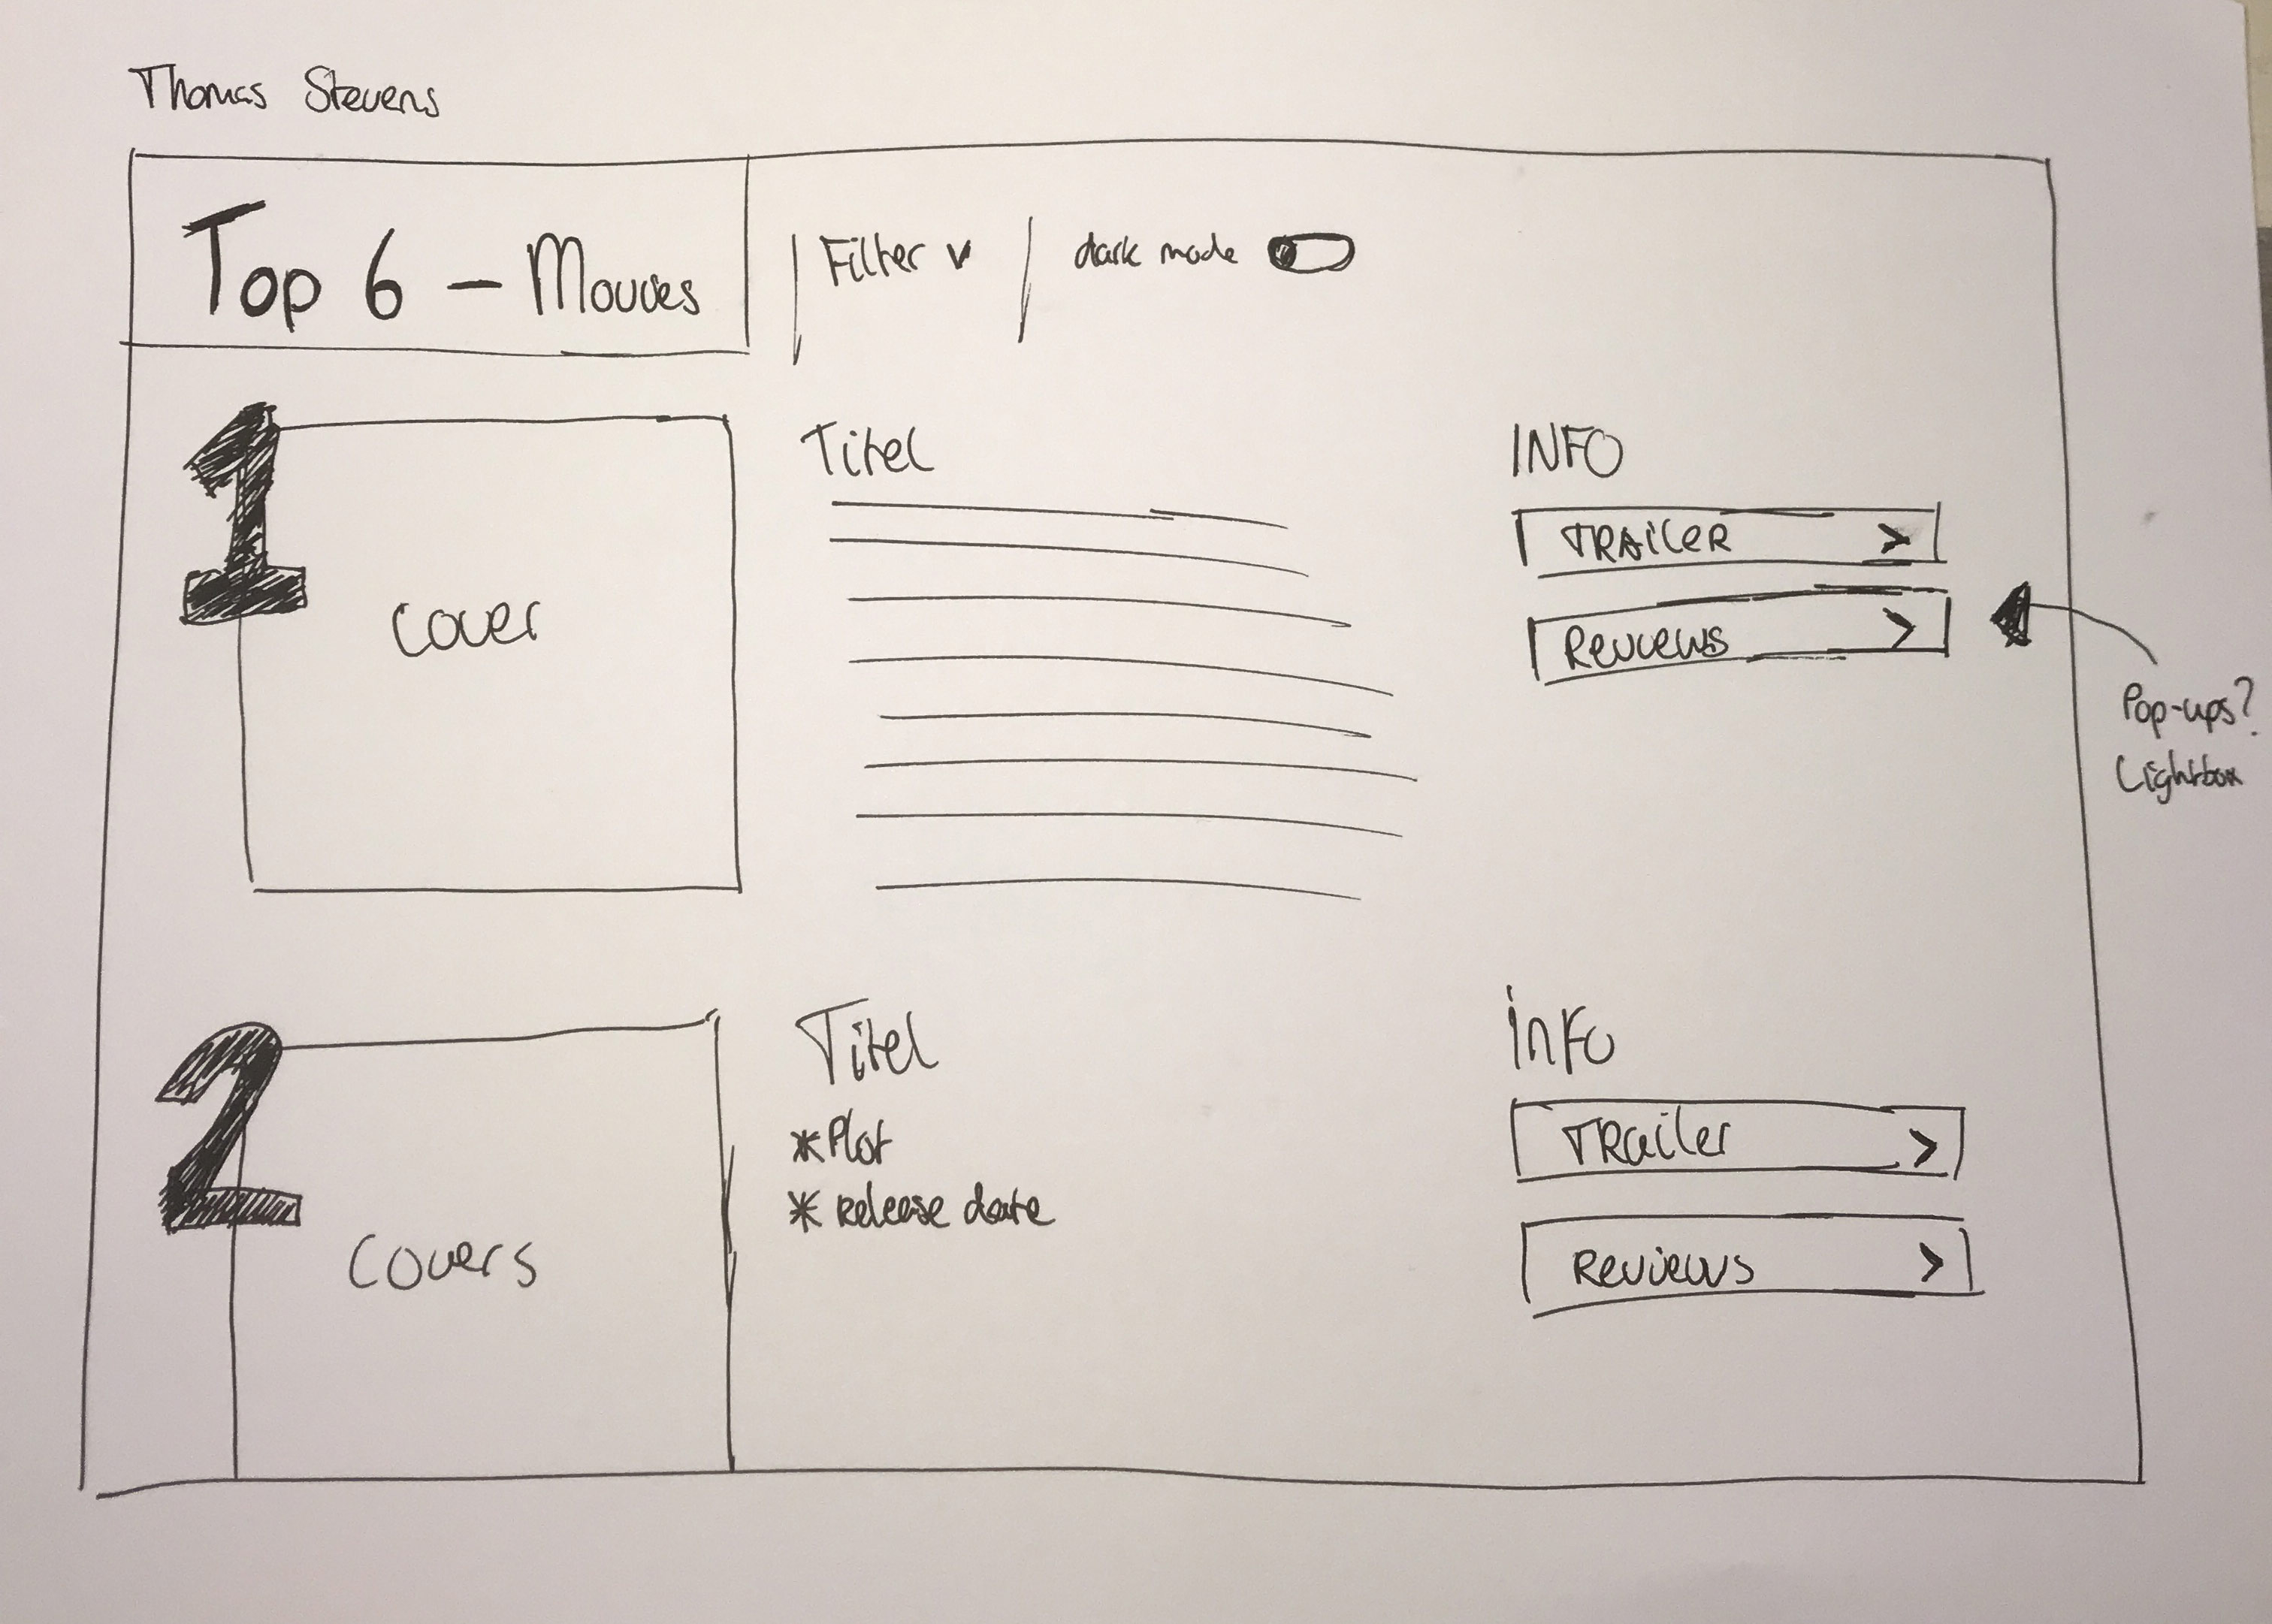 Thomas Stevens
Top 6 - Movies
Filter v
dark mode
1
Cover
Titel
INFO
TRAiLeR >
Reviews >
Pop-ups?
Lightbox
2
Covers
Titel
* Plot
* release date
info
TRailer >
Reviews >